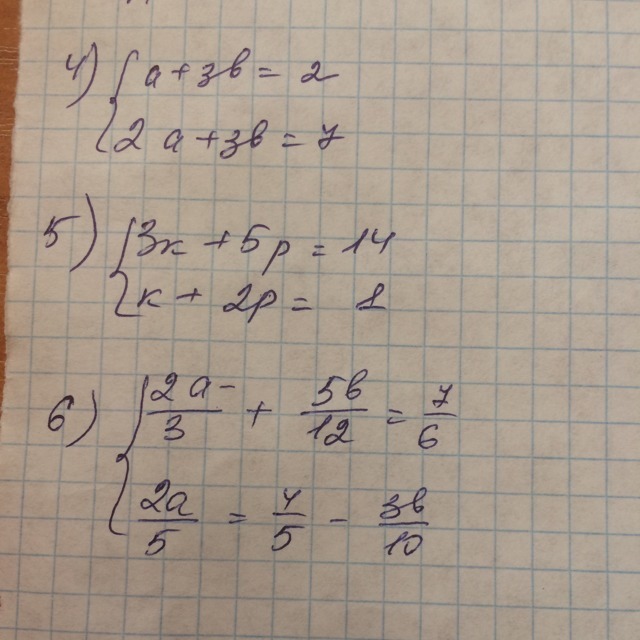 4) { a + 3b = 2
2a + 3b = 7
5) { 3k + 5p = 14
k + 2p = 8
6) { 2a/3 + 5b/12 = 7/6
2a/5 = 4/5 - 3b/10